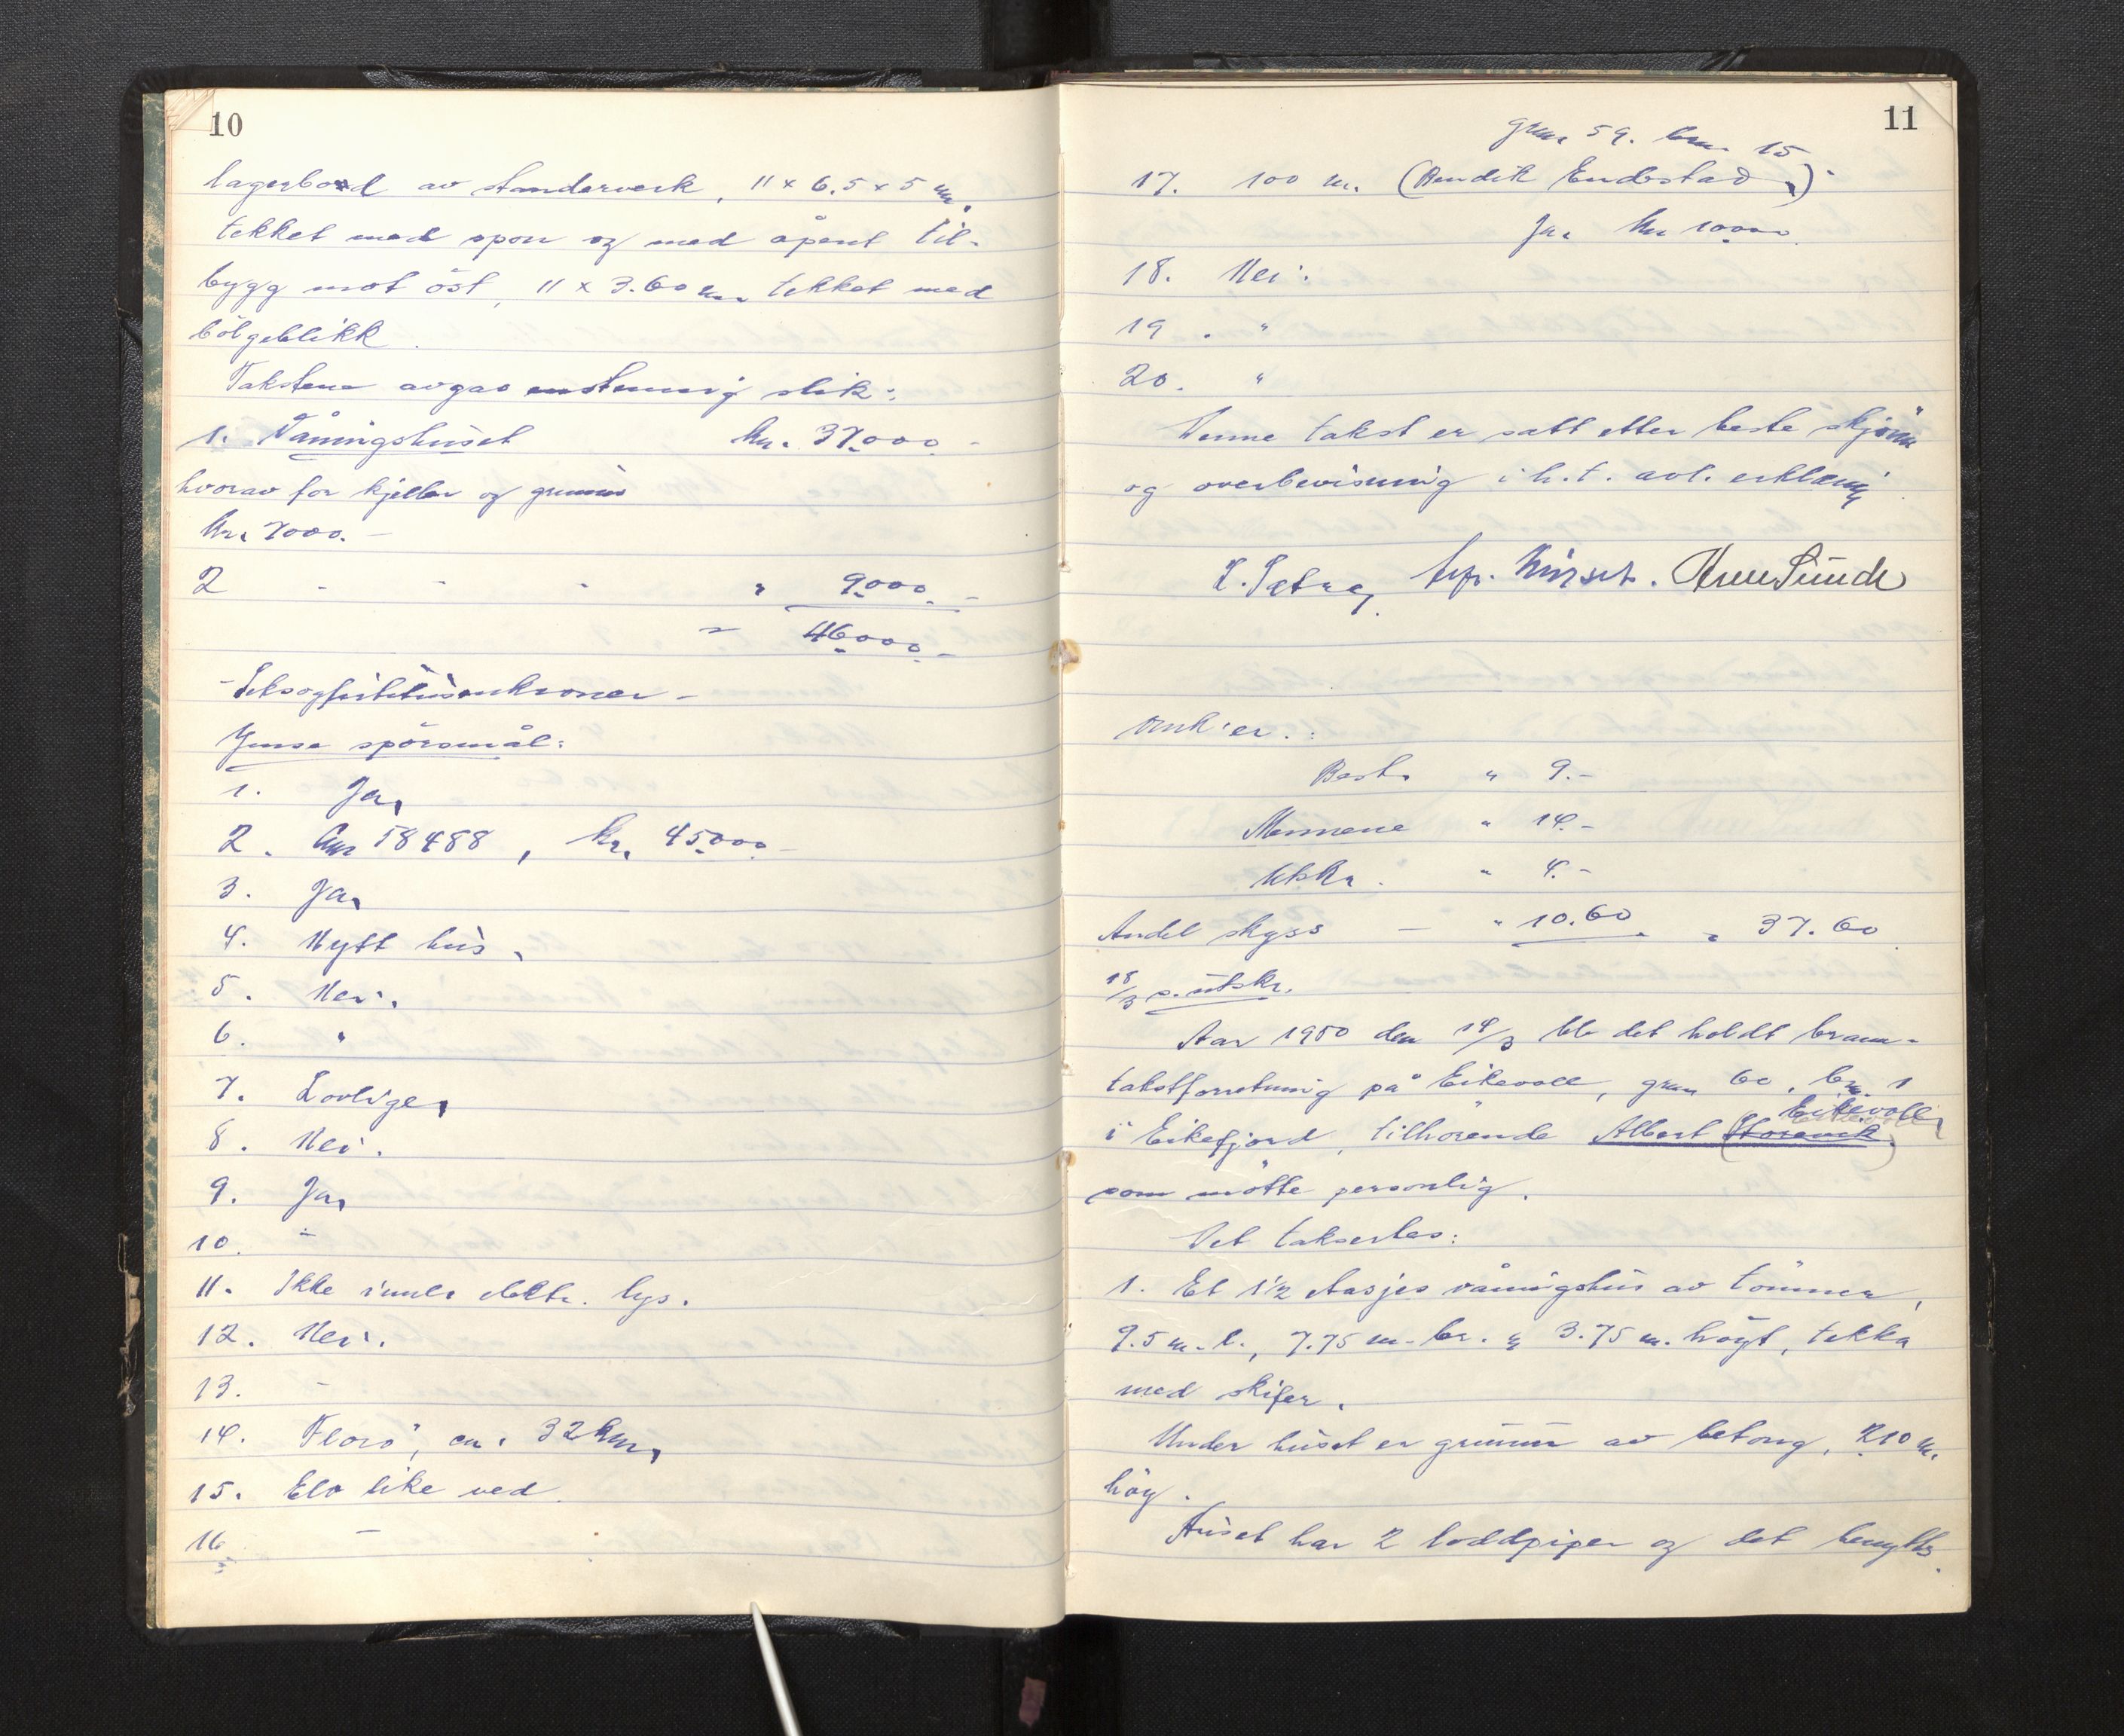 10
lagerbord av standerverk, 11 x 6.5 x 5 m.
tekket med spon og med åpent til-
bygg mot öst, 11 x 3.60 m. tekket med
bölgeblikk.
Takstene avgas enstemmig slik:
1. Våningshuset kr. 37000.-
hvorav for kjeller og grunnmur
kr. 7000.-
2 - - - " 9000.-
" 46000.-
-Seksogfirtitusenkroner-
Ymse spörsmål:
1. Ja,
2. 58488, kr. 45000.-
3. Ja,
4. Nytt hus.
5. Nei.
6. "
7. Lovlige,
8. Nei.
9. Ja,
10. "
11. Ikke innl. elektr. lys.
12. Nei.
13. -
14. Florö, ca. 32 km,
15. Elv like ved.
16 -
11
gnr. 59. bnr. 15
17. 100 m. (Bendik Endestad.)
Ja. kr 10000
18. Nei.
19. "
20. "
Denne takst er satt etter beste skjönn
og overbevisning i h.t. avl. erklæring
Sunde
Omk.er.:
Best. " 9.-
Mennene " 14.-
Utskr. " 4.-
Andel skyss - " 10.60 " 37.60
18/3 s. utskr.
Aar 1950 den 14/3 ble det holdt brann-
takstforretning på Eikevoll, gnr. 60, bnr. 1
Eikevoll,
i Eikefjord, tilhörende Albert (Storevik)
som mötte personlig.
Det taksertes:
1. Et 1 1/2 etasjes våningshus av tömmer,
9.5 m. l., 7.75 m. br. og 3.75 m. högt, tekka
med skifer.
Under huset er grunnmur av betong, 2.10 m.
höy.
Huset har 2 loddpiper og det benyttes